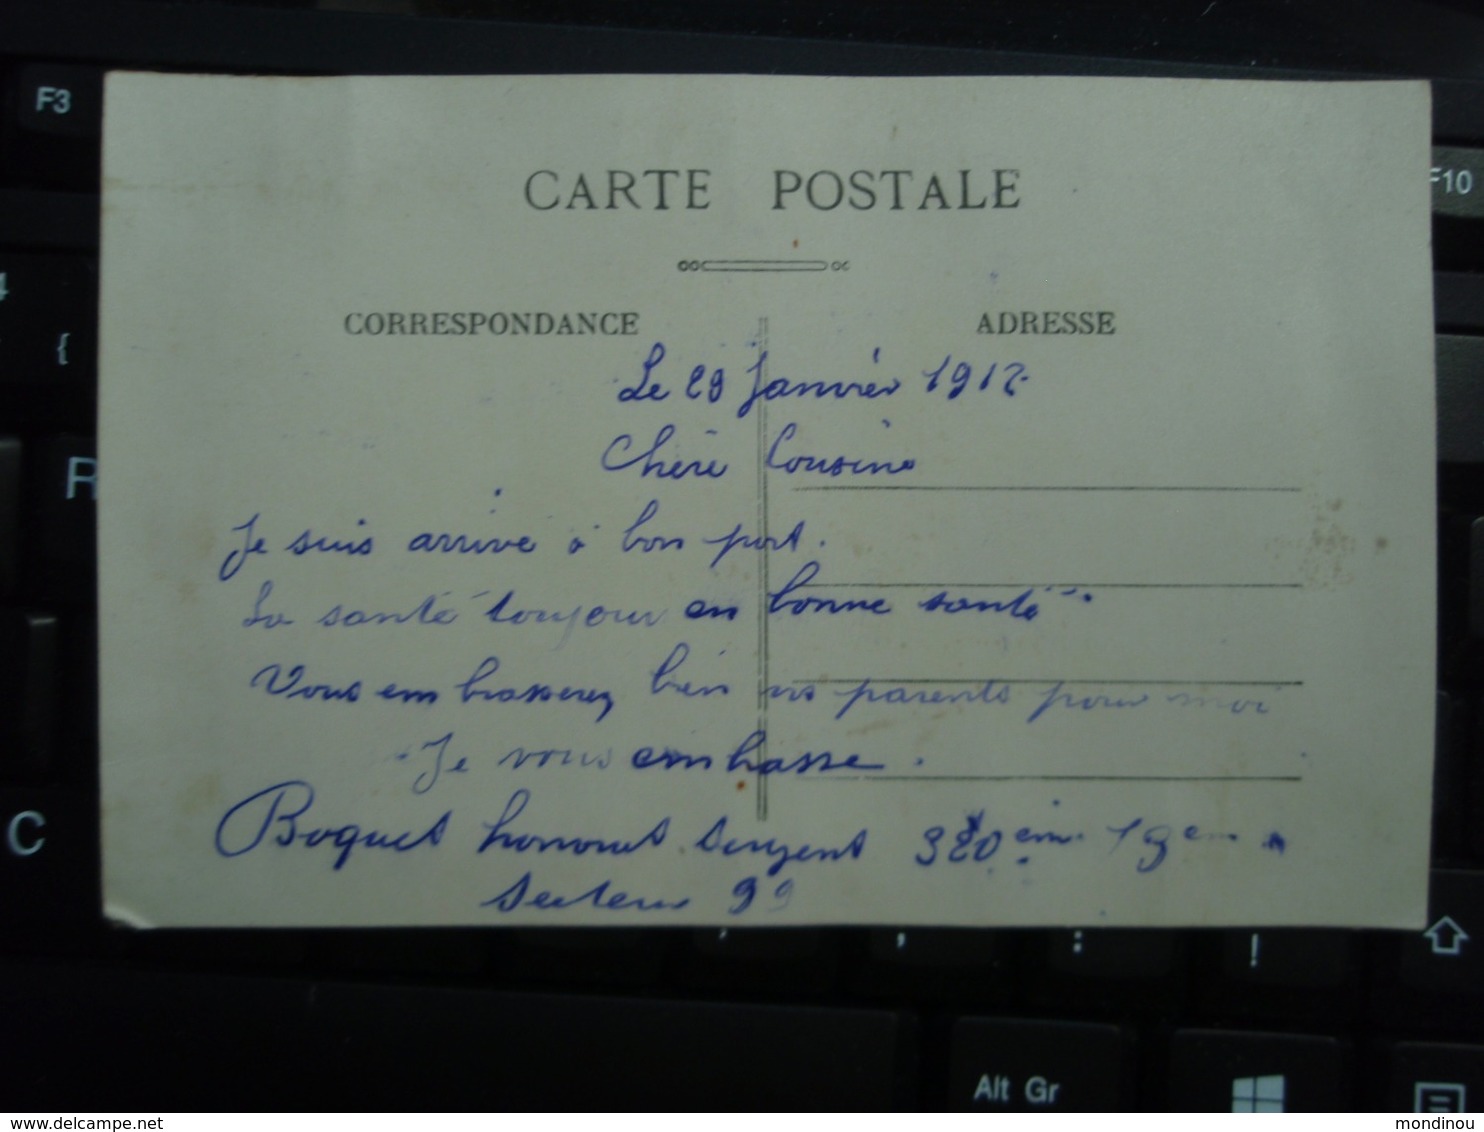 CARTE POSTALE
CORRESPONDANCE
ADRESSE
Le 29 Janvier 1917
Chère Cousine
Je suis arrivé à bon port.
La santé toujour en bonne santé
Vous embrasserez bien nos parents pour moi
Je vous embrasse.
Boquet honoret Sergent 320 ème 19 em
Secteur 99
F3
F10
4
{
R
C
,
;
:
!
Alt Gr
mondinou